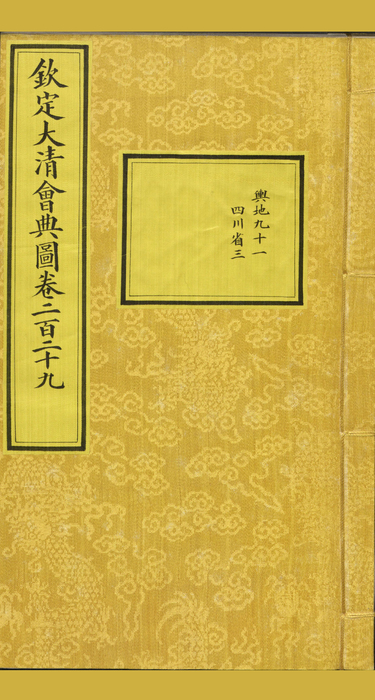 欽定大清會典圖卷二百二十九
輿地九十一
四川省三